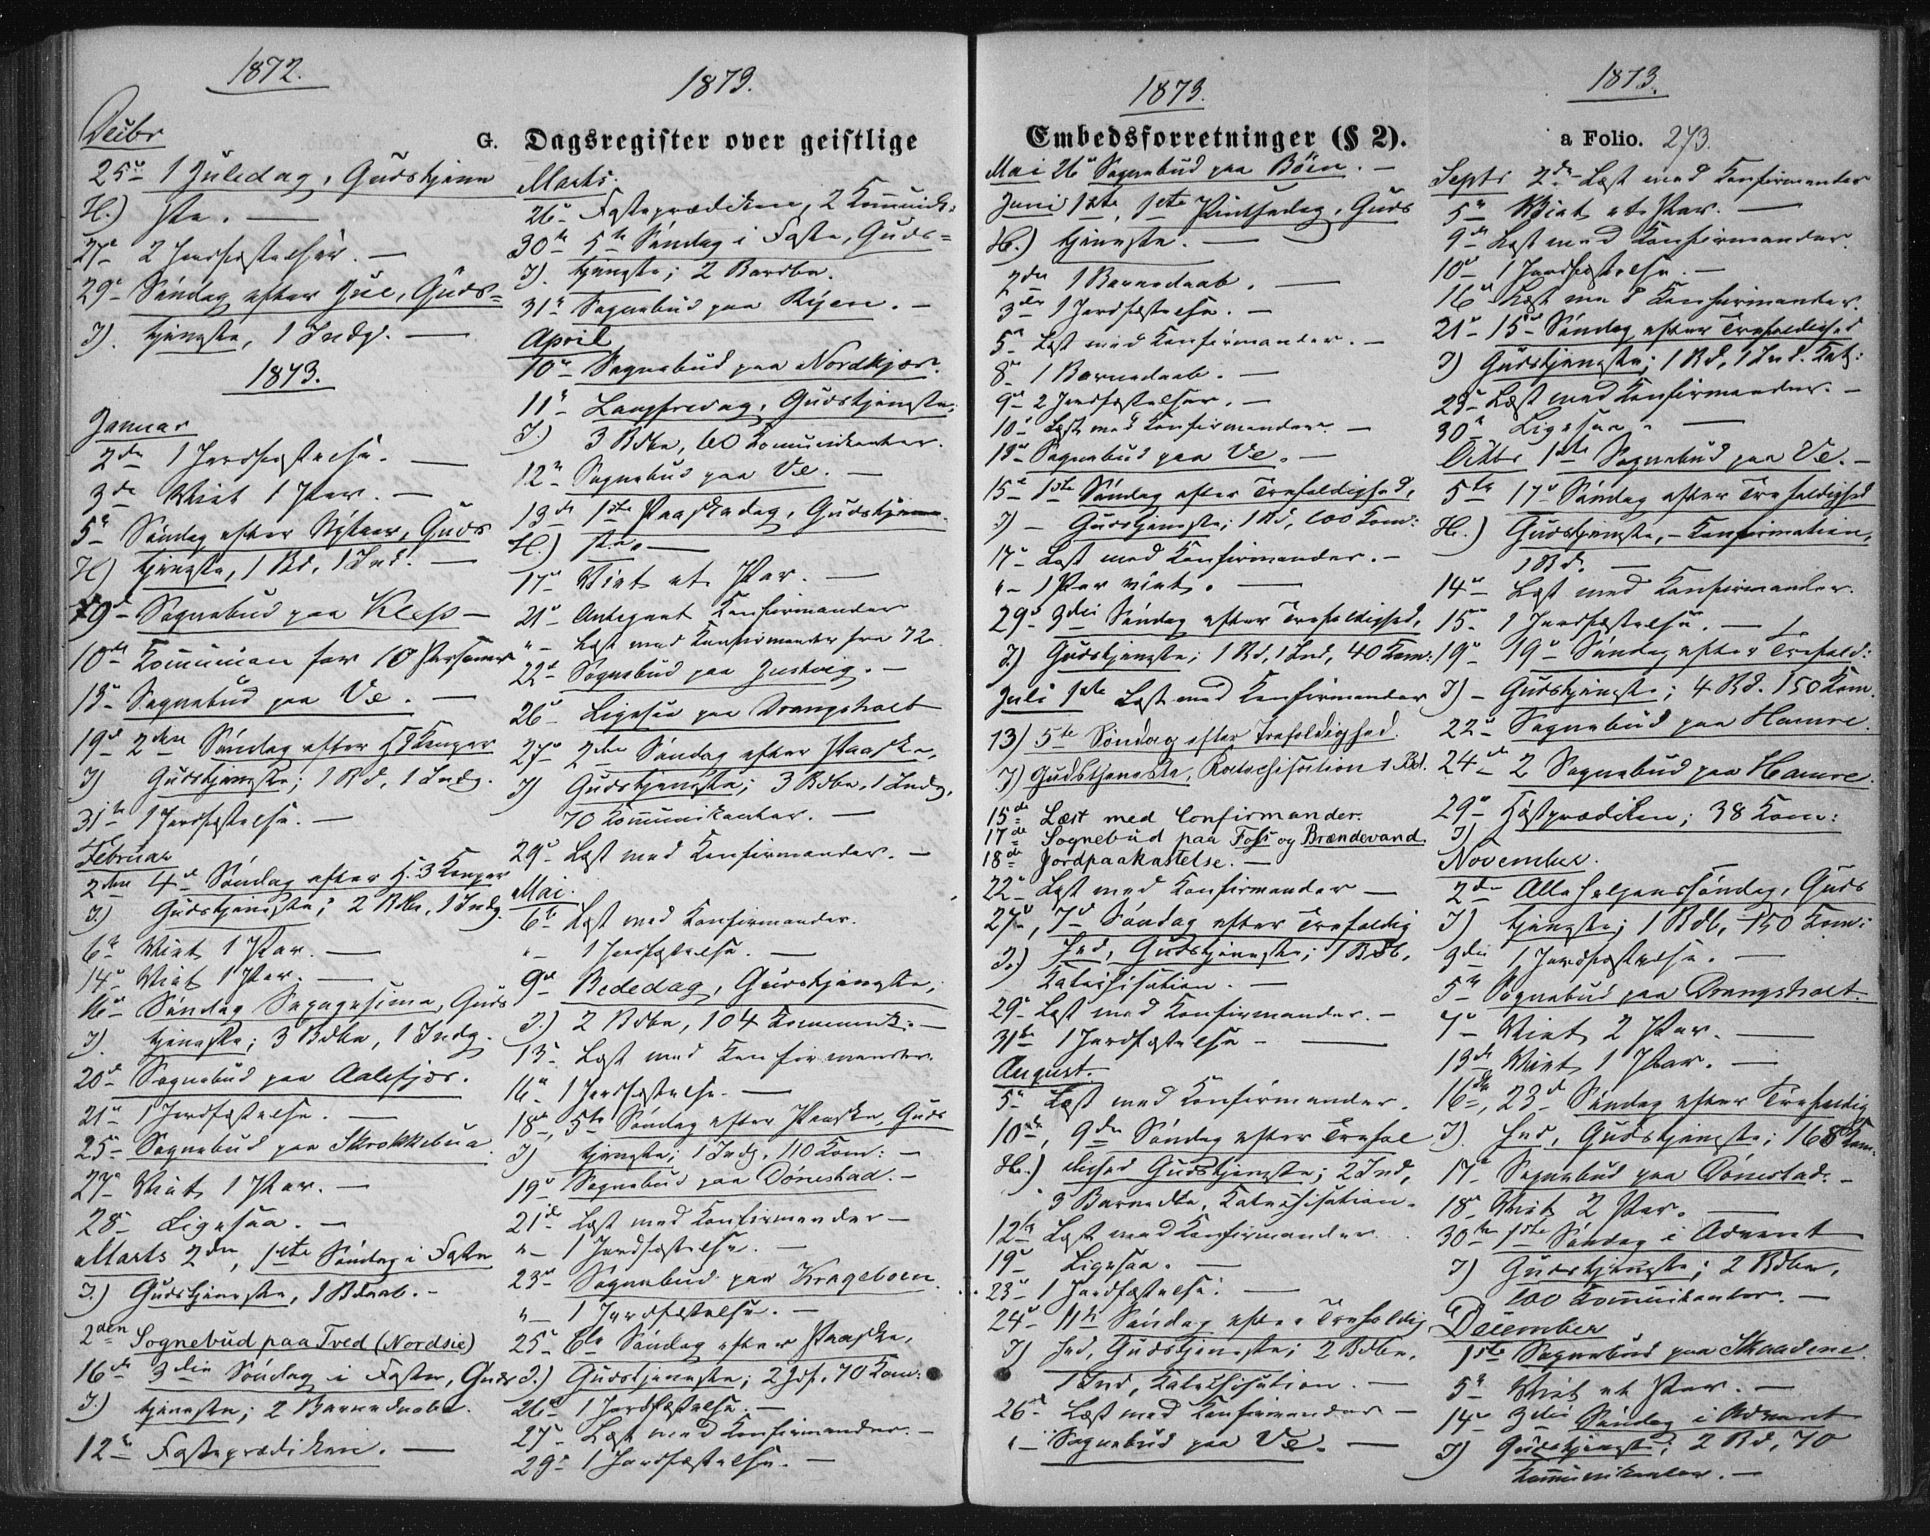 1872.
Decbr
25de 1 Juledag, Gudstjene
H.) ste.
27de 2 Jordfæstelser.
29de Søndag efter Jul, Guds=
T). tjeneste, 1 Indg.
1873.
Januar
2den 1 Jordfæstelse.
3de Viet 1 Par.
5te Søndag efter Nytaar, Guds
H) tjeneste, 1 Bd, 1 Ind.
9de Sognebud paa Klep
10de Kommunion for 10 Personer
13de Sognebud paa Ve.
19de 2den Søndag efter H 3 Konger
T) Gudstjeneste; 1 Bd, 1 Indg.
31te 1 Jordfæstelse.
Februar
2den 4de Søndag efter H. 3 Konger
T.) Gudstjeneste; 2 Bdbe, 1 Indg.
6te Viet 1 Par.
14de Viet 1 Par.
16de Søndag Sexagesima, Guds
T). tjeneste; 3 Bdbe, 1 Indg.
20de Sognebud paa Aalefjær.
21de 1 Jordfæstelse.
25de Sognebud paa Skrokkebua
27de Viet 1 Par.
28de Ligesaa.
Marts 2den, 1ste Søndag i Faste
T.) Gudstjeneste, 1 Bdaab.
2den Sognebud paa Tved (Nordsie)
16de 3die Søndag i Faste, Guds
T.) tjeneste; 2 Barnedaabe.
12te Fasteprædiken.
1873.
G. Dagsregister over geistlige
Marts.
26de Fasteprædiken, 2 Kommunik:
30te 5te Søndag i Faste, Guds=
T). tjeneste; 2 Bardbe.
31te Sognebud paa Ryen.
April
10de Sognebud paa Nordkjær.
11te Langfredag, Gudstjeneste;
T.) 3 Bdbe, 60 Komunikanter.
12te Sognebud paa Ve.
13de 1ste Paaskedag, Gudstjene
H.) ste.
17de Viet et Par.
21de Antegnet Konfirmander
"— Læst med Konfirmander fra 72
22de Sognebud paa Justvig.
26de Ligesaa paa Drangsholt
27de 2den Søndag efter Paaske,
T) Gudstjeneste; 3 Bdbe, 1 Indg,
70 Kommunikanter.
29de Læst med Konfirmander.
Mai.
6te Læst med Konfirmander.
"— 1 Jordfæstelse.
9de Bededag, Gudstjeneste;
T.) 2 Bdbe, 104 Kommunik:
13de Læst med Konfirmander
16de 1 Jordfæstelse.
18de, 5te Søndag efter Paaske, Guds
T) tjeneste; 1 Indg. 110 Kom:
19de Sognebud paa Dønestad.
21de Læst med Konfirmander
"— 1 Jordfæstelse.
23de Sognebud paa Krageboen
"— 1 Jordfæstelse.
25de 6te Søndag efter Paaske,
T.) Gudstjeneste; 2 Jdf, 70 Kom:
26de 1 Jordfæstelse.
27de Læst med Konfirmander.
29de 1 Jordfæstelse.
1873.
Embedsforretninger (§ 2).
Mai 26de Sognebud paa Bøen.
Juni 1ste, 1ste Pintsedag, Guds
H.) tjeneste.
2den 1 Barnedaab.
3die 1 Jordfæstelse.
5te Læst med Konfirmander.
8de 1 Barnedaab.
9de 2 Jordfæstelser.
10de Læst med Konfirmander.
13de Sognebud paa Ve.
15de 1ste Søndag efter Trefoldighed,
T) Gudstjeneste; 1 Bd, 100 Kom:
17de Læst med Konfirmander.
"— 1 Par viet.
29de 3die Søndag efter Trefoldighed,
T.) Gudstjeneste; 1 Bd, 1 Ind, 40 Kom:
Juli 1ste Læst med Konfirmander
13) 5te Søndag efter Trefoldighed.
T) Gudstjeneste, Katechisation 1 Bd.
15de Læst med Confirmander.
17de Sognebud paa Foss og Brændevand.
18de Jordpaakastelse.
22de Læst med Konfirmander
27de, 7de Søndag efter Trefoldig
T.) hed, Gudstjeneste; 1 Bdb,
Katechisation.
29de Læst med Konfirmander.
31te 1 Jordfæstelse
August.
5te Læst med Konfirmander.
10de, 9de Søndag efter Trefol
H.) dighed Gudstjeneste; 2 Ind,
3 Barnedbe, Katechisation.
12te Læst med Konfirmander.
19de Ligesaa.
23de 1 Jordfæstelse.
24de 11te Søndag efter Trefoldig
T) hed, Gudstjeneste; 2 Bdbe,
1 Ind, Katechisation.
26de Læst med Konfirmander
"— Sognebud paa Ve.
1873.
a Folio. 273.
Septr 2den Læst med Konfirmander
5te Viet et Par.
9de Læst med Konfirmander.
10de 1 Jordfæstelse.
16de Læst med Konfirmander.
21de 15de Søndag efter Trefoldighed
T) Gudstjeneste; 1 Bd, 1 Ind. Kat:
23de Læst med Konfirmander.
30te Ligesaa.
Oktbr 1ste Sognebud paa Ve.
5te 17de Søndag efter Trefoldighed
H.) Gudstjeneste, – Konfirmation,
1 Bd.
14de Læst med Konfirmander.
15de 1 Jordfæstelse.
19de 19de Søndag efter Trefold:
T) Gudstjeneste; 4 Bd. 150 Kom.
22de Sognebud paa Hamre.
24de 2 Sognebud paa Hamre.
29de Høstprædiken; 38 Kom:
T)
November.
2den Allehelgenssøndag, Guds
T) tjeneste; 1 Bdb, 150 Kom:
3die 1 Jordfæstelse.
5te Sognebud paa Drangsholt.
7de Viet 2 Par.
13de Viet 1 Par.
16de, 23de Søndag efter Trefoldig
T). hed, Gudstjeneste; 168 Kom.
17de Sognebud paa Dønestad.
18de Viet 2 Par.
30te 1ste Søndag i Advent
T) Gudstjeneste; 2 Bdbe,
100 Kommunikanter.
December
1ste Sognebud paa Skaadene.
5te Viet et Par.
14de 3die Søndag i Advent
T) Gudstjeneste; 2 Bd, 70
Kommunikanter.